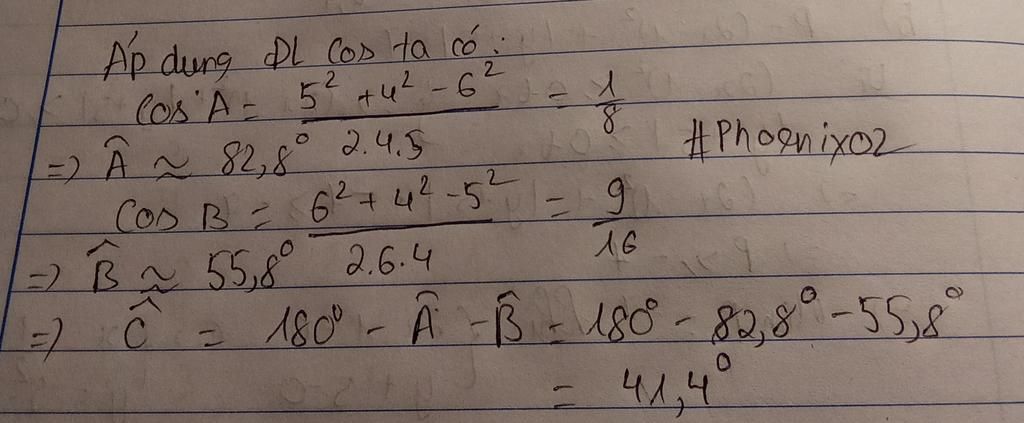 Áp dụng ĐL Cos ta có:
Cos A = (5² + 4² - 6²) / (2.4.5) = 1/8
=> Â ≈ 82,8°
#Phoenix02
Cos B = (6² + 4² - 5²) / (2.6.4) = 9/16
=> B̂ ≈ 55,8°
=> Ĉ = 180° - Â - B̂ = 180° - 82,8° - 55,8°
= 41,4°